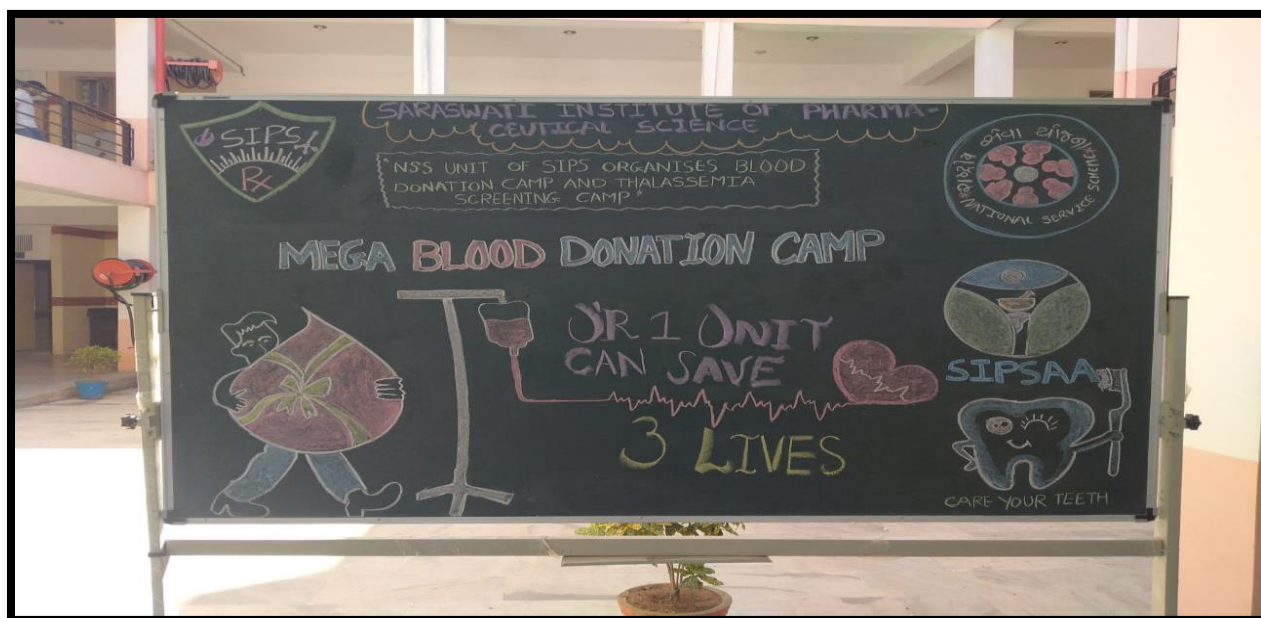 SIPS
Rx
SARASWATI INSTITUTE OF PHARMA-
CEUTICAL SCIENCE
"NSS UNIT OF SIPS ORGANISES BLOOD
DONATION CAMP AND THALASSEMIA
SCREENING CAMP"
NATIONAL SERVICE SCHEME
MEGA BLOOD DONATION CAMP
UR 1 UNIT
CAN SAVE
3 LIVES
SIPSAA
CARE YOUR TEETH